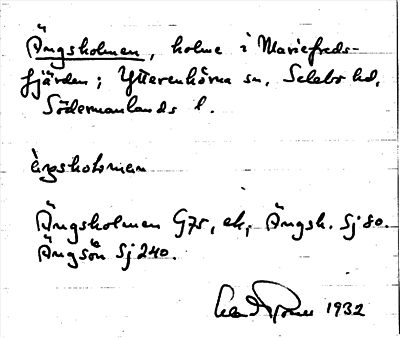 Ängsholmen, holme i Mariefreds-
fjärden; Ytterenhörna sn, Selebo hd,
Södermanlands l.
ängsholmen
Ängsholmen G75, ek, Ängsh. Sj 80.
Ängsön Sj 240.
1932